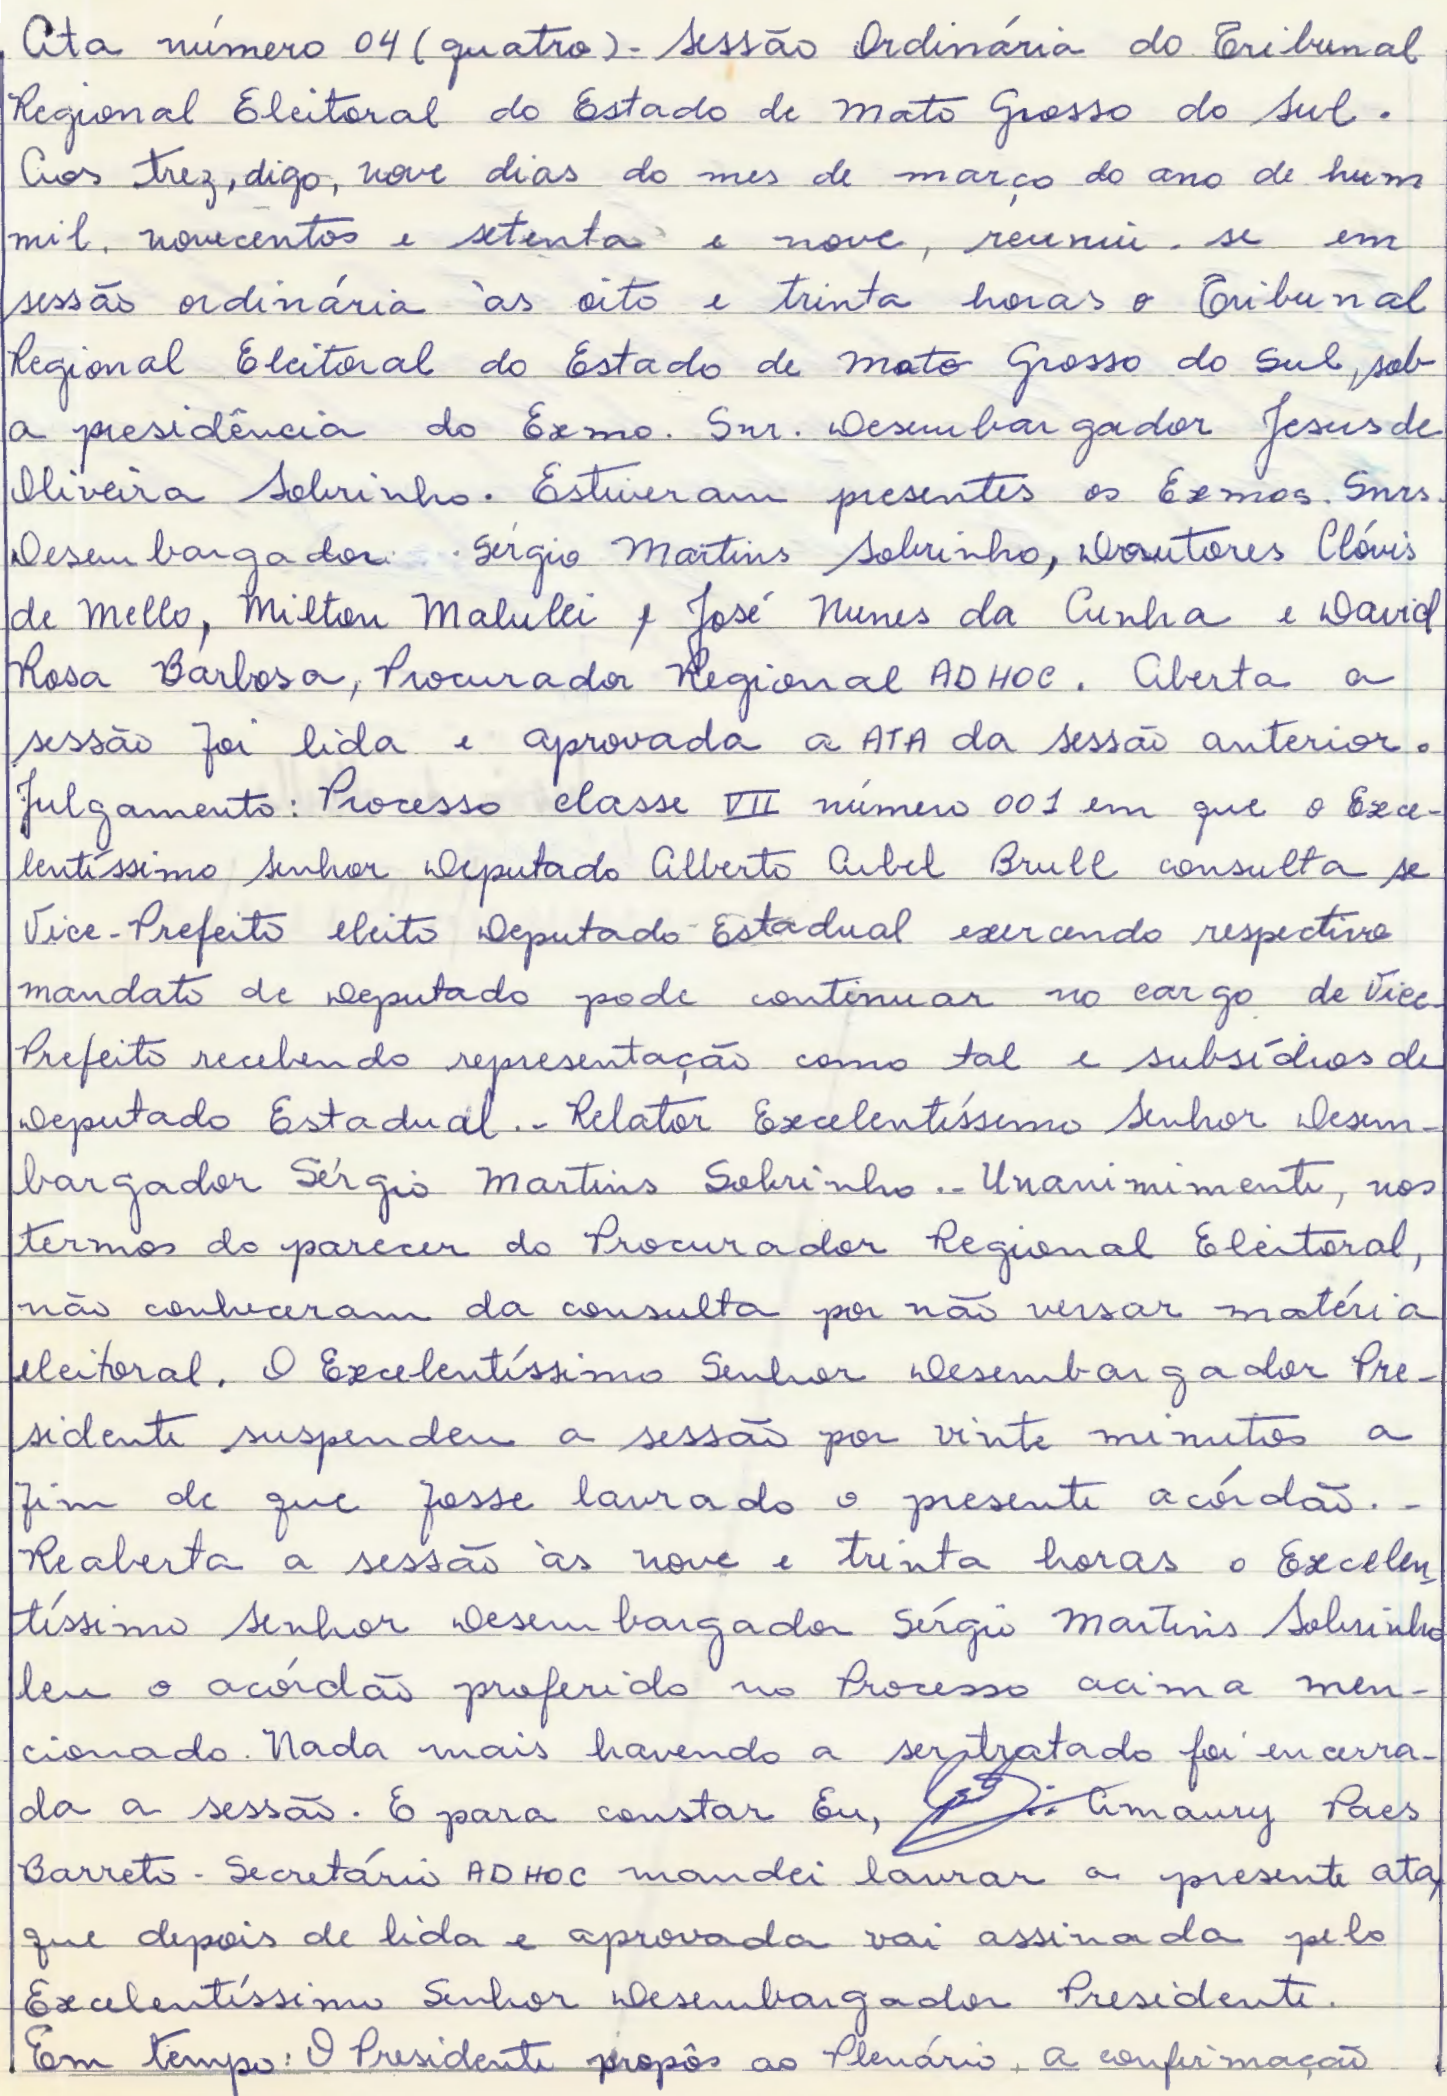 Ata número 04 (quatro) - Sessão Ordinária do Tribunal
Regional Eleitoral do Estado de Mato Grosso do Sul.
Aos trez, digo, nove dias do mes de março do ano de hum
mil, novecentos e setenta e nove, reuniu-se em
sessão ordinária às oito e trinta horas o Tribunal
Regional Eleitoral do Estado de Mato Grosso do Sul, sob
a presidência do Exmo. Snr. Desembargador Jesus de
Oliveira Sobrinho. Estiveram presentes os Exmos. Snrs.
Desembargador Sérgio Martins Sobrinho, Doutores Clóvis
de Mello, Milton Malulei, José Nunes da Cunha e David
Rosa Bárbosa, Procurador Regional AD HOC. Aberta a
sessão foi lida e aprovada a ATA da sessão anterior.
Julgamento: Processo classe VII número 001 em que o Exce-
lentíssimo Senhor Deputado Alberto Cubel Brull consulta se
Vice-Prefeito eleito Deputado Estadual exercendo respectivo
mandato de Deputado pode continuar no cargo de Vice-
Prefeito recebendo representação como tal e subsídios de
Deputado Estadual.- Relator Excelentíssimo Senhor Desem-
bargador Sérgio Martins Sobrinho.- Unanimimente, nos
termos do parecer do Procurador Regional Eleitoral,
não conheceram da consulta por não versar matéria
eleitoral. O Excelentíssimo Senhor Desembargador Pre-
sidente suspendeu a sessão por vinte minutos a
fim de que fosse lavrado o presente acórdão.-
Reaberta a sessão às nove e trinta horas o Excelen-
tíssimo Senhor Desembargador Sérgio Martins Sobrinho
leu o acórdão proferido no Processo acima men-
cionado. Nada mais havendo a ser tratado foi encerra-
da a sessão. E para constar Eu, Amaury Paes
Barreto - Secretário AD HOC mandei lavrar a presente ata,
que depois de lida e aprovada vai assinada pelo
Excelentíssimo Senhor Desembargador Presidente.
Em tempo: O Presidente propôs ao Plenário, a confirmação